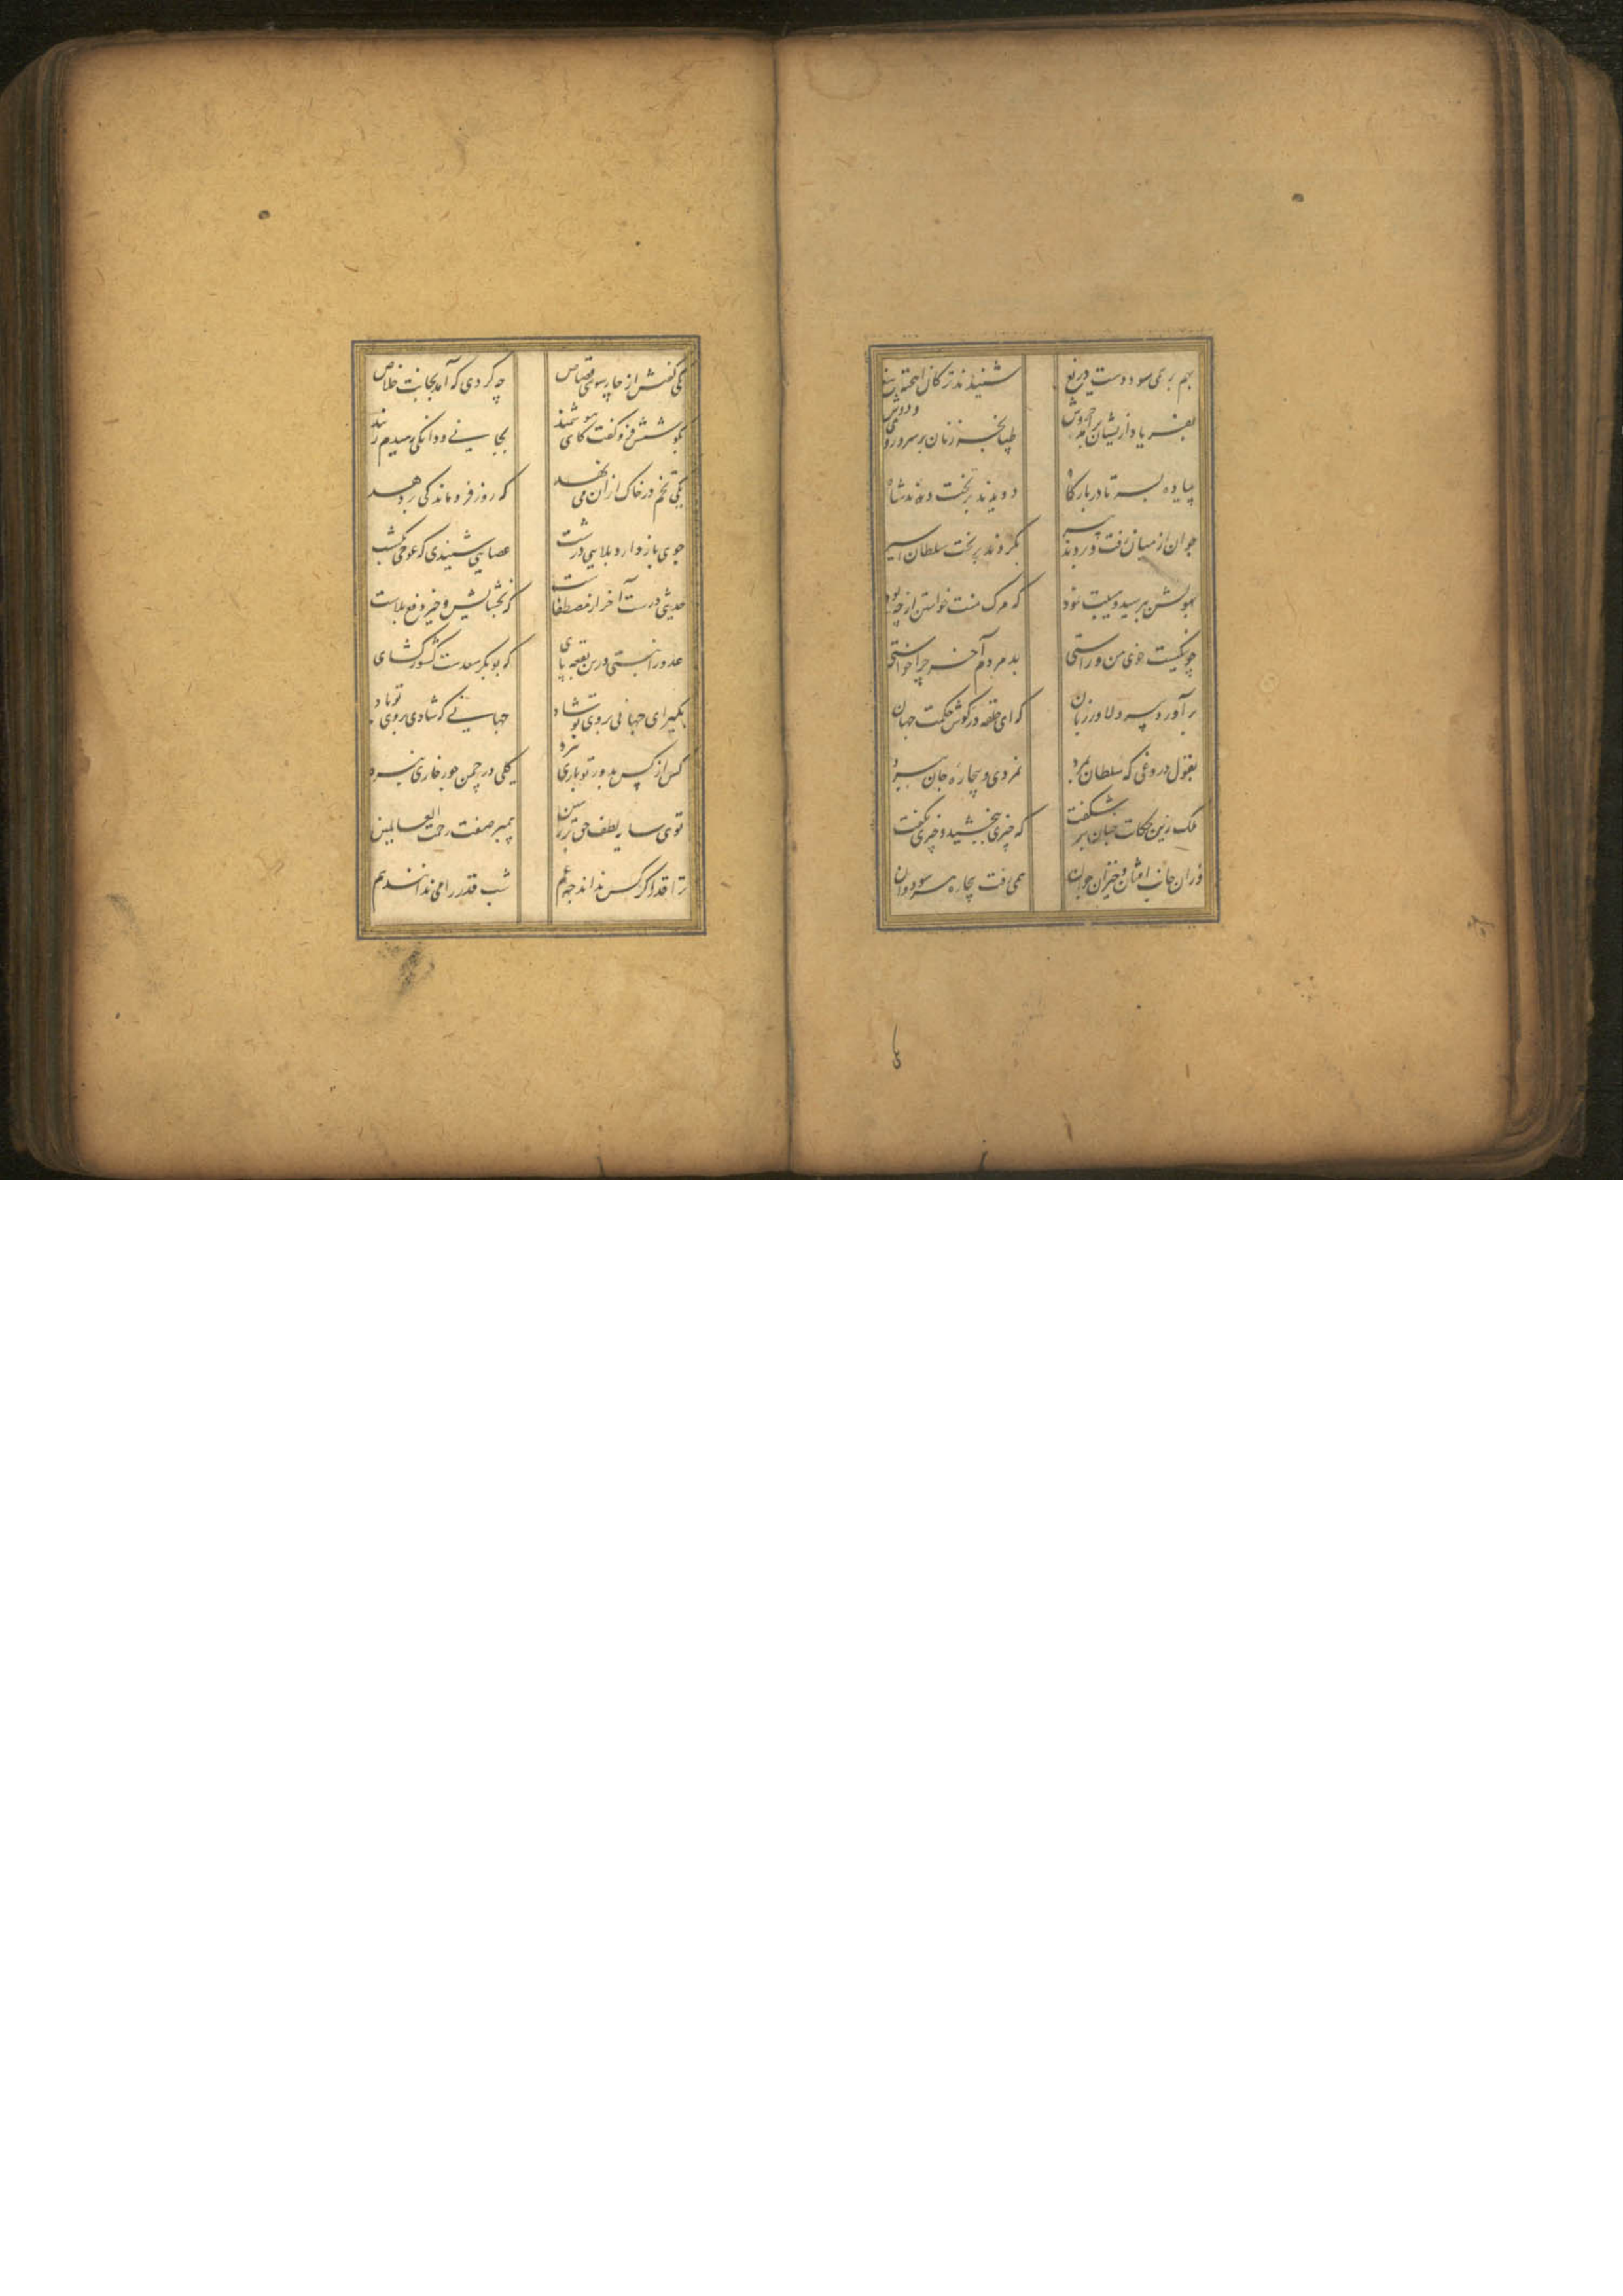 بهم بر می سود دست دریغ شنیدند ترکان آهخته تیغ
بفریاد ازیشان برآمد خروش طپانچه زنان بر سر و روی و دوش
پیاده بسر تا در بارگاه دویدند بر تخت دیدند شاه
جوان از میان رفت و بردند پیر بگردند بر تخت سلطان اسیر
بهولش بپرسید و هیبت نمود که مرگ منت خواستن از چه بود
چو نیکست خوی من و راستی بد مردم آخر چرا خواستی
برآورد پیر دلاور زبان که ای حلقه در گوش حکمت جهان
بقول دروغی که سلطان بمرد نمردی و بیچاره جان ببرد
ملک زین حکایت چنان بر شکفت که چیزی ببخشید و چیزی نگفت
وزان جانب افتان و خیزان جوان همی رفت بیچاره هر سو دوان
یکی
یکی گفتش از چارسوی قصاص چه کردی که آمد بجانت خلاص
بگوشش فرو گفت کای هوشمند بجانی و دانگی رهیدم ز بند
یکی تخم در خاک ازان می نهد که روز فروماندگی بر دهد
جوی باز دارد بلایی درشت عصایی شنیدی که عوجی بکشت
حدیثی درست آخر از مصطفاست که بخشایش و خیر دفع بلاست
عدو را نبینی درین بقعه پای که بوبکر سعدست کشور گشای
بگیر ای جهانی بروی تو شاد جهانی که شادی بروی تو باد
کس از کس بدور تو باری نبرد گلی در چمن جور خاری نبرد
توی سایه لطف حق بر زمین پیمبر صفت رحمت العالمین
ترا قدر اگر کس نداند چه غم شب قدر را می ندانند هم